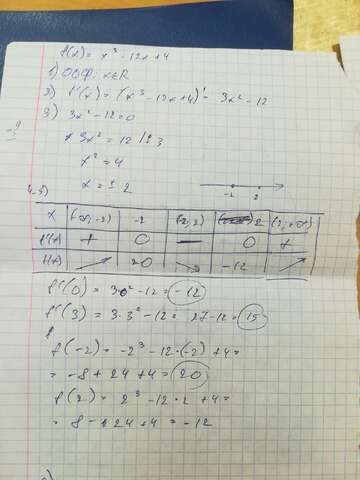 f(x) = x³ - 12x + 4
1) ООФ: x∈R
2) f'(x) = (x³ - 12x + 4)' = 3x² - 12
3) 3x² - 12 = 0
3x² = 12 /:3
x² = 4
x = ± 2
-2 2
4-5)
x (-∞; -2) -2 (-2; 2) 2 (2; +∞)
f'(x) + 0 — 0 +
f(x) ↗ 20 ↘ -12 ↗
f'(0) = 3·0² - 12 = -12
f'(3) = 3·3² - 12 = 27 - 12 = 15
f(-2) = -2³ - 12·(-2) + 4 =
= -8 + 24 + 4 = 20
f(2) = 2³ - 12·2 + 4 =
= 8 - 24 + 4 = -12